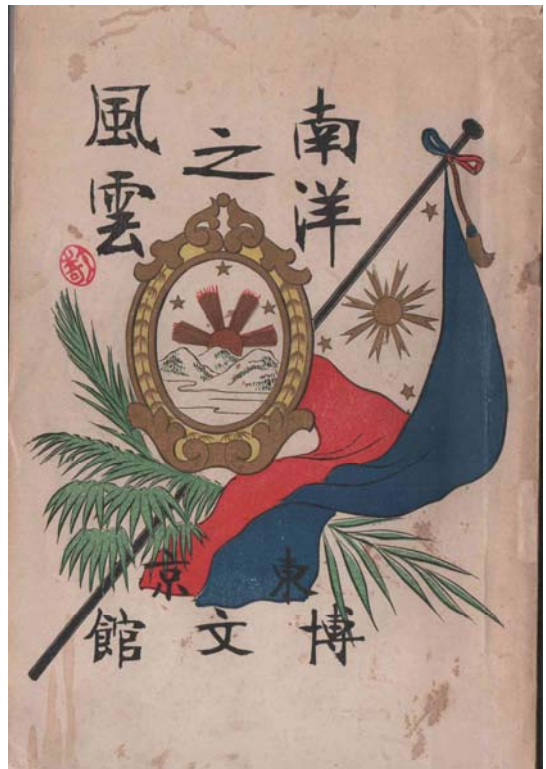 南洋
之
風雲
東京
博文館